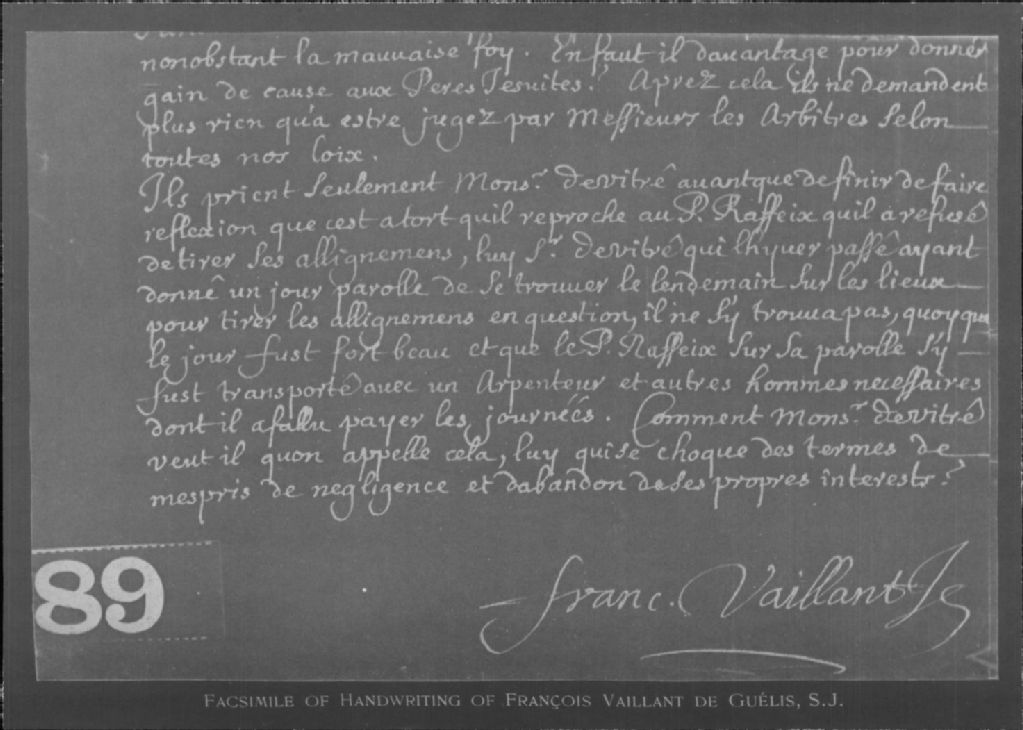 nonobstant la mauuaise foy. En faut il dauantage pour donner
gain de cause aux Peres Jesuites? Aprez cela ils ne demandent
plus rien qu'a estre jugez par Messieurs les Arbitres selon
toutes nos loix.
Ils prient seulement Monsr. devitré auantque definir de faire
reflexion que cest atort quil reproche au P. Raffeix quil a refusé
detirer ses allignemens, luy Sr. devitré qui lhyuer passé ayant
donné un jour parolle de se trouuer le lendemain sur les lieux
pour tirer les allignemens en question, il ne s'y trouua pas, quoyque
le jour fust fort beau et que le P. Raffeix sur sa parolle s'y
fust transporté auec un Arpenteur et autres hommes necessaires
dont il afallu payer les journées. Comment Monsr. devitré
veut il quon appelle cela, luy quise choque des termes de
mespris de negligence et dabandon de ses propres interests?
franc. Vaillant Je
89
FACSIMILE OF HANDWRITING OF FRANÇOIS VAILLANT DE GUÉLIS, S.J.